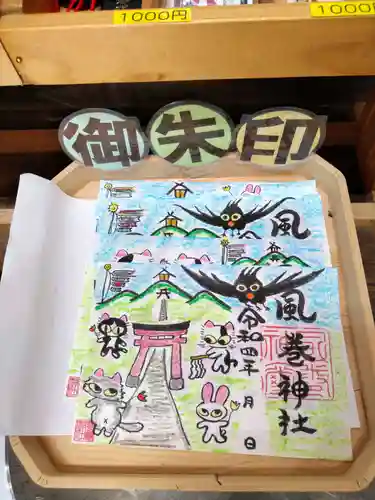 1000円
1000円
御朱印
風
風
風巻神社
令和四年 月 日